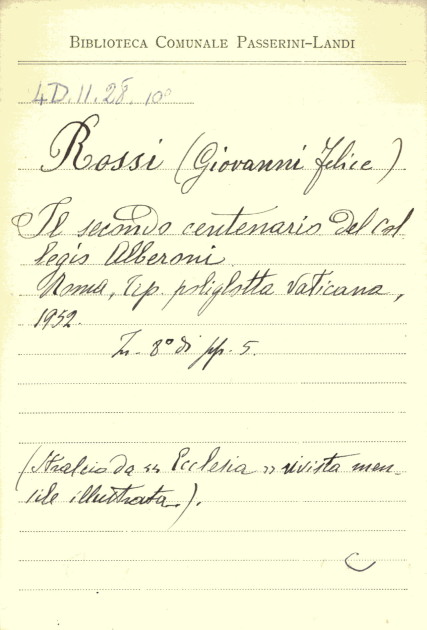 BIBLIOTECA COMUNALE PASSERINI-LANDI
4D.II.28. 10°
Rossi (Giovanni Felice)
Il secondo centenario del Col
legio Alberoni
Roma, Tip. poliglotta Vaticana,
1952.
In-8° di pp. 5.
(Stralcio da « Ecclesia » rivista men-
sile illustrata.).